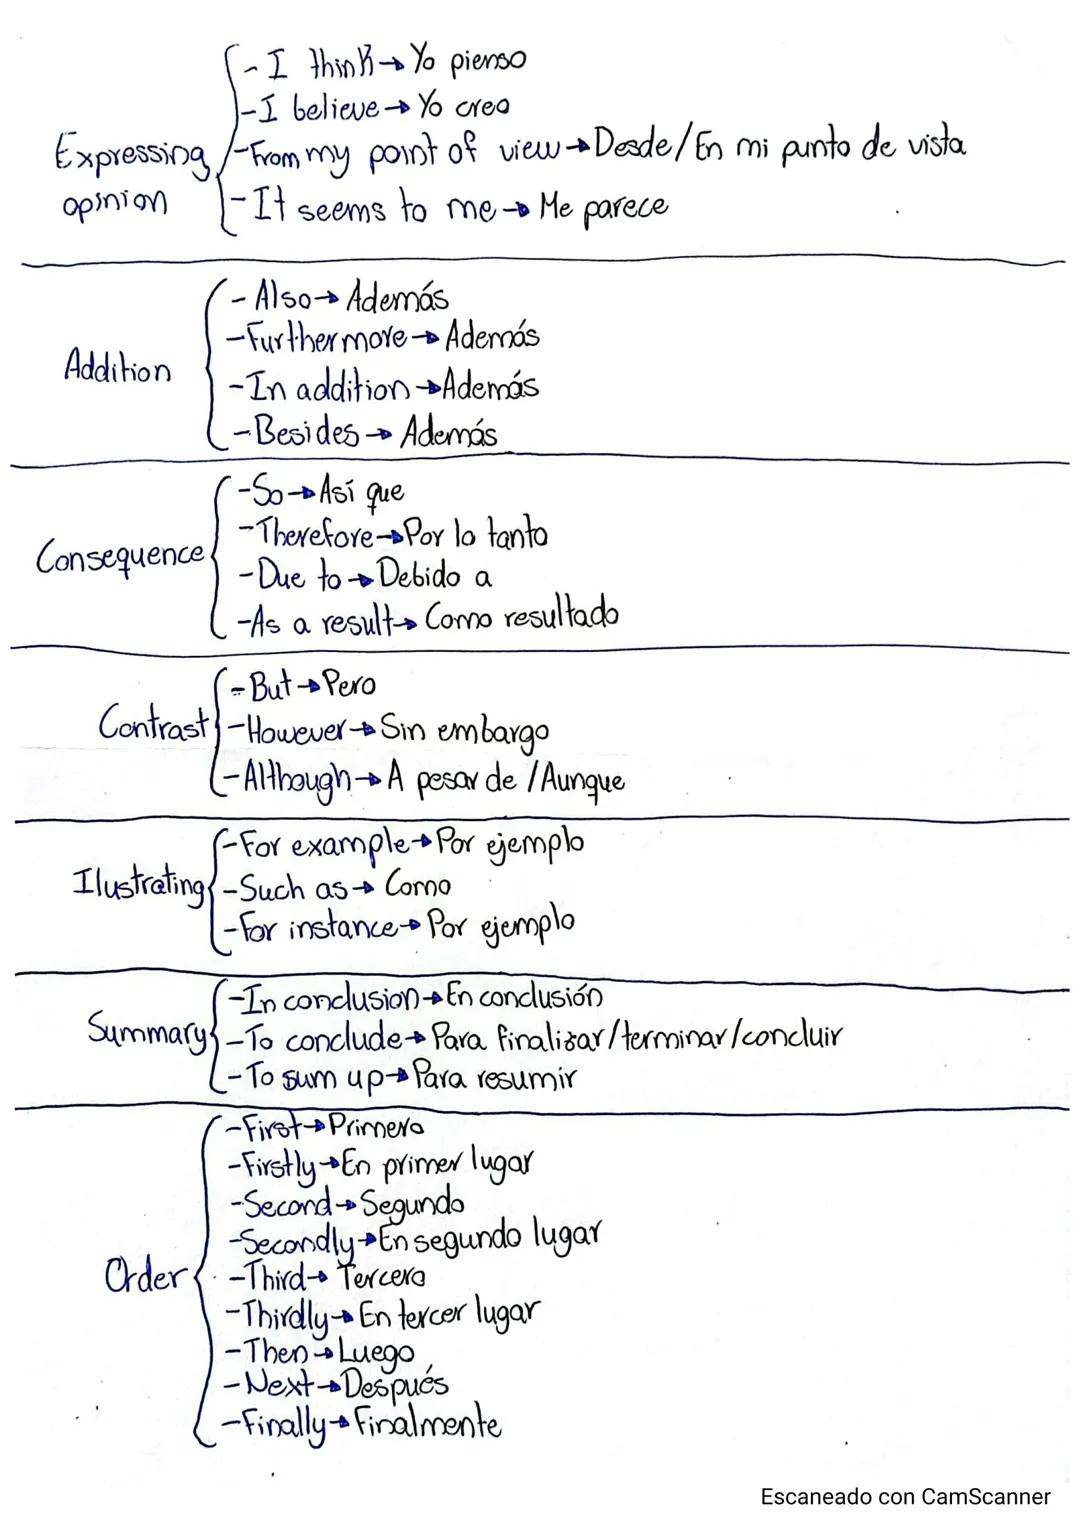 - I think → Yo pienso
- I believe → Yo creo
Expressing opinion
- From my point of view → Desde/En mi punto de vista
- It seems to me → Me parece
- Also → Además
- Furthermore → Además
Addition
- In addition → Además
- Besides → Además
- So → Así que
- Therefore → Por lo tanto
Consequence
- Due to → Debido a
- As a result → Como resultado
- But → Pero
Contrast
- However → Sin embargo
- Although → A pesar de / Aunque
- For example → Por ejemplo
Ilustrating
- Such as → Como
- For instance → Por ejemplo
- In conclusion → En conclusión
Summary
- To conclude → Para finalizar/terminar/concluir
- To sum up → Para resumir
- First → Primero
- Firstly → En primer lugar
- Second → Segundo
- Secondly → En segundo lugar
Order
- Third → Tercero
- Thirdly → En tercer lugar
- Then → Luego
- Next → Después
- Finally → Finalmente
Escaneado con CamScanner